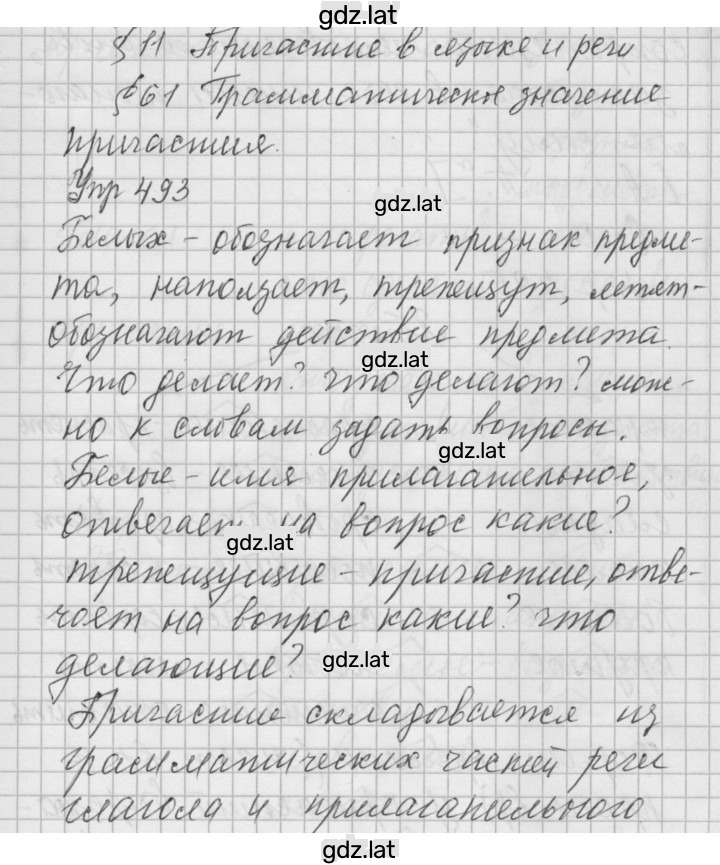 gdz.lat
§ 11 Причастие в языке и речи
§ 61 Грамматическое значение
причастия.
Упр 493
gdz.lat
Белых - обозначает признак предме-
та, наползает, трепещут, летят -
обозначают действие предмета.
gdz.lat
Что делает? что делают? мож-
но к словам задать вопросы.
gdz.lat
Белые - имя прилагательное,
отвечает на вопрос какие?
gdz.lat
трепещущие - причастие, отве-
чает на вопрос какие? что
делающие?
gdz.lat
Причастие складывается из
грамматических частей речи
глагола и прилагательного
gdz.lat